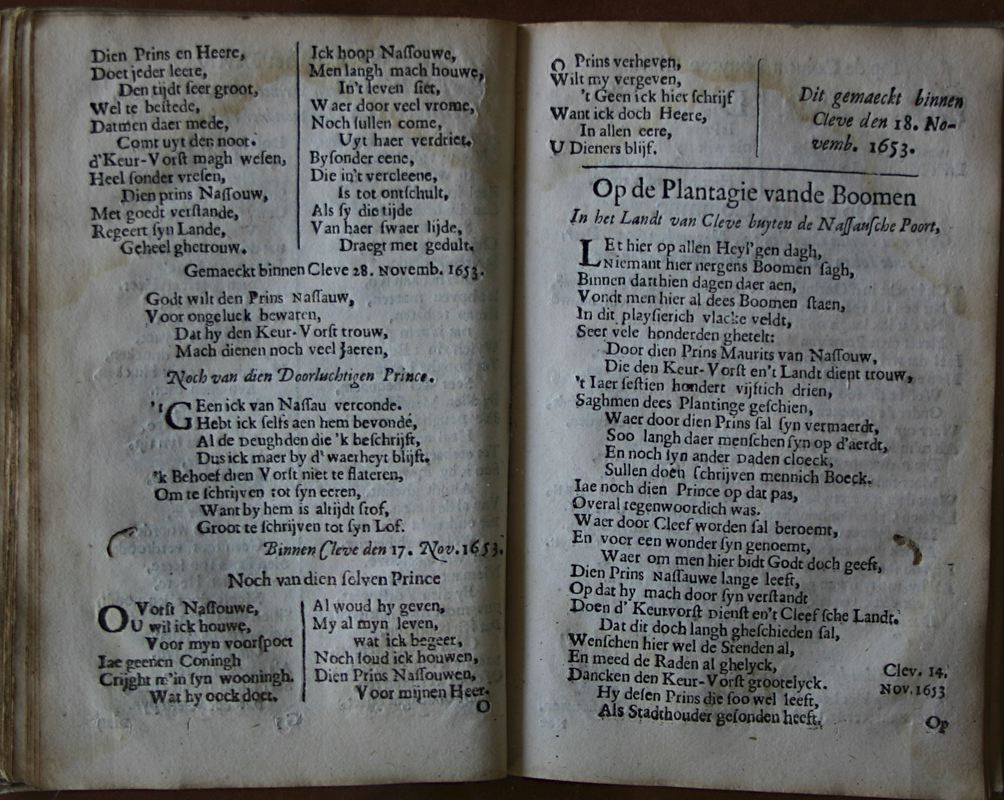 Dien Prins en Heere,
Doet jeder leere,
Den tijdt seer groot,
Wel te bestede,
Datmen daer mede,
Comt uyt den noot.
d'Keur-Vorst magh wesen,
Heel sonder vresen,
Dien prins Nassouw,
Met goedt verstande,
Regeert syn Lande,
Geheel ghetrouw.
Ick hoop Nassouwe,
Men langh mach houwe,
In't leven siet,
Waer door veel vrome,
Noch sullen come,
Uyt haer verdriet.
Bysonder eene,
Die in't vercleene,
Is tot ontschult,
Als sy die tijde
Van haer swaer lijde,
Draegt met gedult.
Gemaeckt binnen Cleve 28. Novemb. 1653.
Godt wilt den Prins Nassauw,
Voor ongeluck bewaren,
Dat hy den Keur-Vorst trouw,
Mach dienen noch veel Jaeren,
Noch van dien Doorluchtigen Prince.
'tGEen ick van Nassau verconde.
Hebt ick selfs aen hem bevonde,
Al de Deughden die 'k beschrijft,
Dus ick maer by d'waerheyt blijft.
'k Behoef dien Vorst niet te flateren,
Om te schrijven tot syn eeren,
Want by hem is altijdt stof,
Groot te schrijven tot syn Lof.
Binnen Cleve den 17. Nov. 1653.
Noch van dien selven Prince
O Vorst Nassouwe,
U wil ick houwe,
Voor myn voorspoet
Iae geenen Coningh
Crijght m'in syn wooningh.
Wat hy oock doet.
Al woud hy geven,
My al myn leven,
wat ick begeer,
Noch soud ick houwen,
Dien Prins Nassouwen,
Voor mijnen Heer.
O
O Prins verheven,
Wilt my vergeven,
't Geen ick hier schrijf
Want ick doch Heere,
In allen eere,
U Dieners blijf.
Dit gemaeckt binnen
Cleve den 18. No-
vemb. 1653.
Op de Plantagie vande Boomen
In het Landt van Cleve buyten de Nassausche Poort,
LEt hier op allen Heyl'gen dagh,
Niemant hier nergens Boomen sagh,
Binnen darthien dagen daer aen,
Vondt men hier al dees Boomen staen,
In dit playsierich vlacke veldt,
Seer vele honderden ghetelt:
Door dien Prins Maurits van Nassouw,
Die den Keur-Vorst en't Landt dient trouw,
't Iaer sestien hondert vijftich drien,
Saghmen dees Plantinge geschien,
Waer door dien Prins sal syn vermaerdt,
Soo langh daer menschen syn op d'aerdt,
En noch syn ander Daden cloeck,
Sullen doen schrijven mennich Boeck.
Iae noch dien Prince op dat pas,
Overal tegenwoordich was.
Waer door Cleef worden sal beroemt,
En voor een wonder syn genoemt,
Waer om men hier bidt Godt doch geeft,
Dien Prins Nassauwe lange leeft,
Op dat hy mach door syn verstandt
Doen d'Keurvorst Dienst en't Cleefsche Landt.
Dat dit doch langh gheschieden sal,
Wenschen hier wel de Stenden al,
En meed de Raden al ghelyck,
Dancken den Keur-Vorst grootelyck.
Hy desen Prins die soo wel leeft,
Als Stadthouder gesonden heeft.
Clev. 14.
Nov. 1653
Op